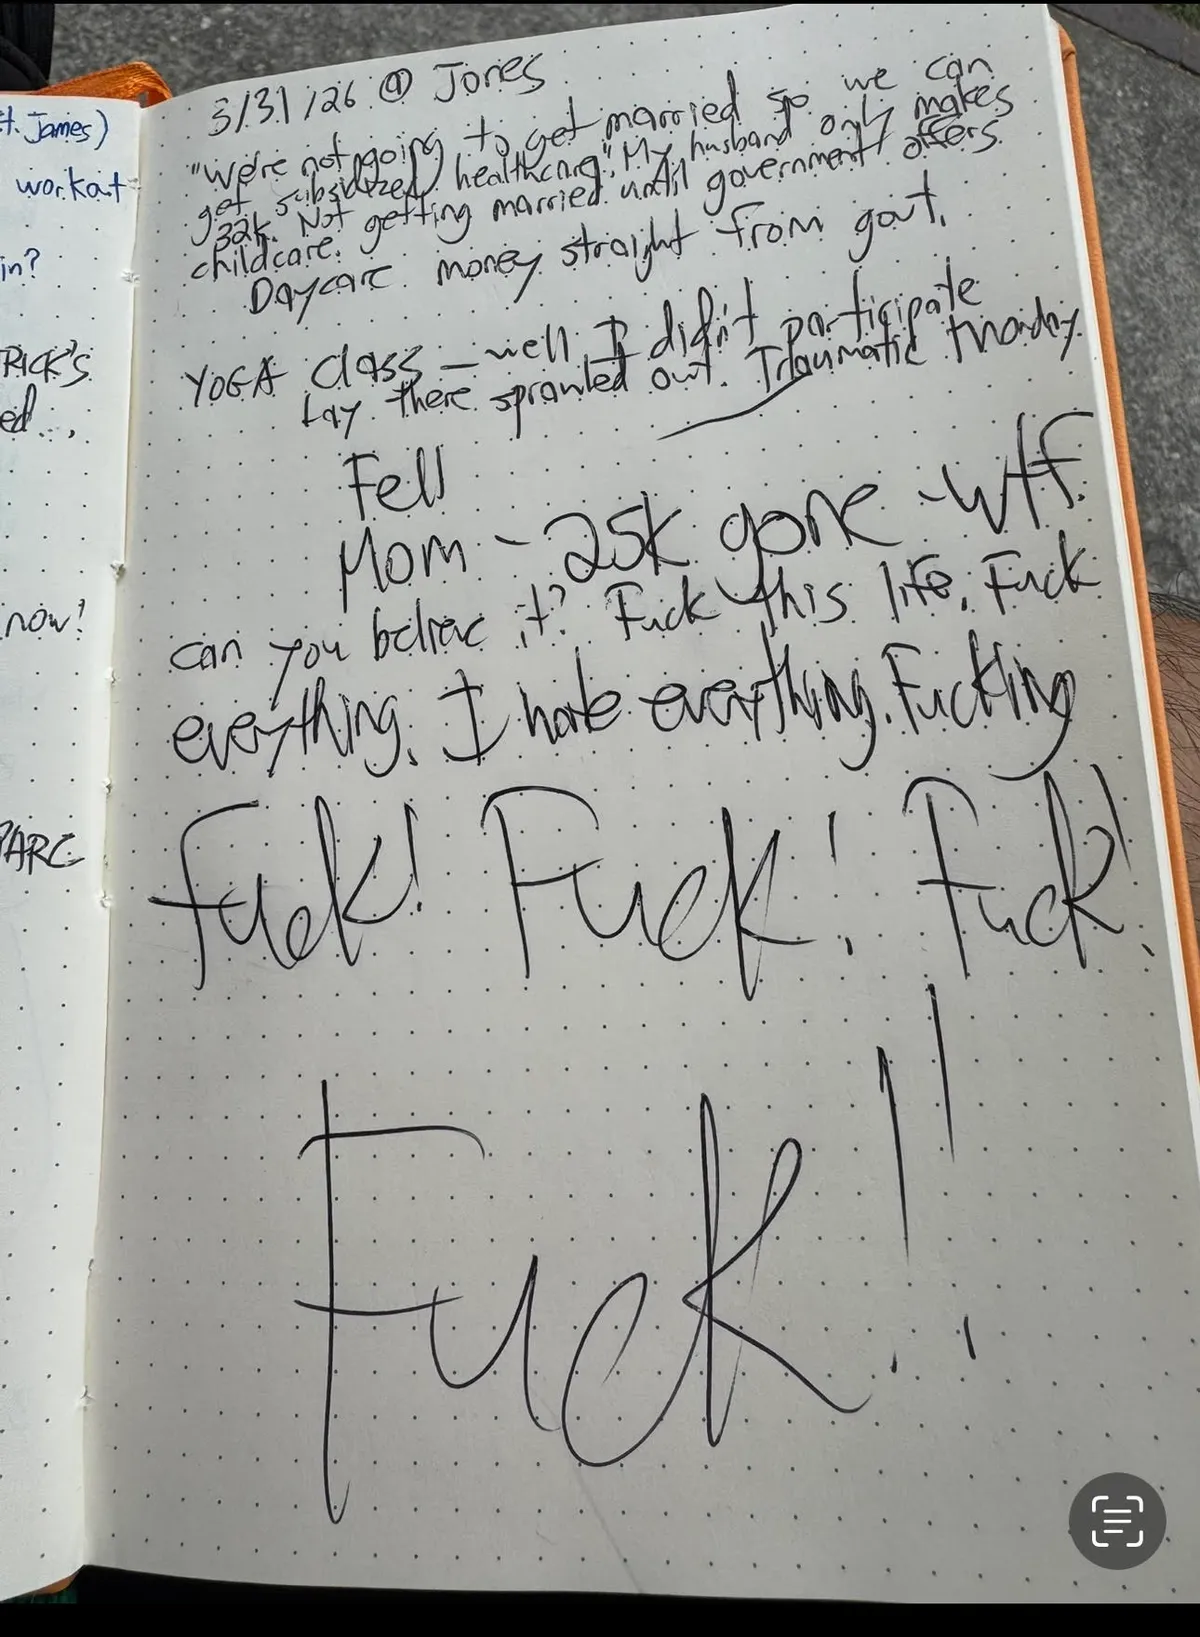 H. James)
workout
in?
RICK'S
ed...
now?
PARC
3/31/26 @ Jones
"We're not going to get married so we can
get subsidized healthcare". My husband only makes
32k. Not getting married until government offers
childcare.
Daycare money straight from govt.
YOGA class – well I didn't participate
Lay there sprawled out. Traumatic Monday
Fell
Mom – 25k gone – wtf.
can you believe it? Fuck this life. Fuck
everything. I hate everything. Fucking
Fuck! Fuck! Fuck!
Fuck!!